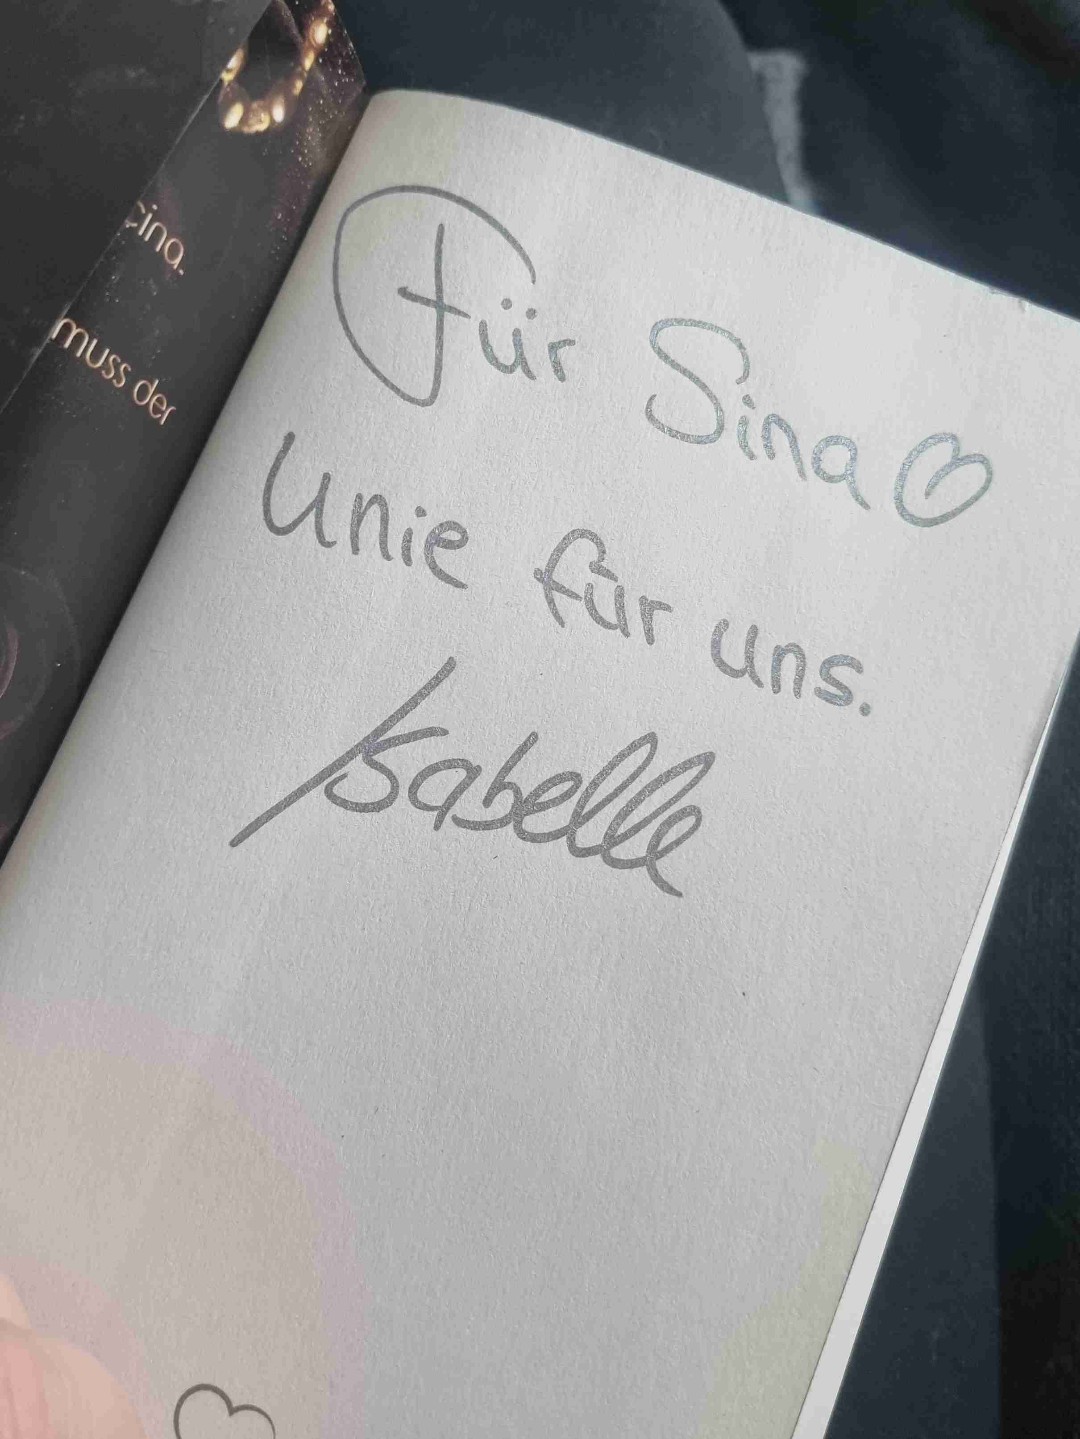 cina.
muss der
Für Sina♡
Unie für uns.
Isabelle